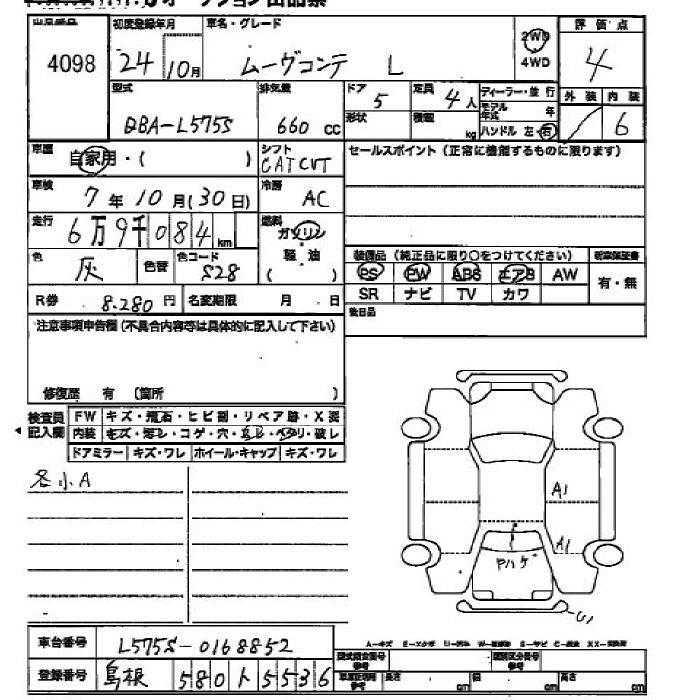 出品番号 初度登録年月 車名・グレード 2WD 評価点
4098 24年10月 ムーヴコンテ L 4WD 4
型式 排気量 ドア 5 定員 4人 ディーラー・並行 外装 内装
DBA-L575S 660 cc 形状 積載 kg モデル年式 年 6
ハンドル 左・右
車歴 自家用・( ) シフト CATCVT セールスポイント (正常に機能するものに限ります)
車検 7年10月(30日) 冷房 AC
走行 6万9千084km 燃料 ガソリン
軽油
( )
色 灰 色替 色コード S28
装備品 (純正品に限り○をつけてください) 新車保証書
PS PW ABS エアB AW 有・無
SR ナビ TV カワ
R券 8.280円 名変期限 月 日
後日品
注意事項申告欄(不具合内容等は具体的に記入して下さい)
修復歴 有 (箇所 )
検査員記入欄 FW キズ・飛石・ヒビ割・リペア跡・X
内装 キズ・汚レ・コゲ・穴・
ドアミラー キズ・ワレ ホイール・キャップ キズ・ワレ
各小A
A1
A1
ヤハゲ
車台番号 L575S-0168852
登録番号 島根 580 ト 5536
長さ cm 幅 cm 高さ cm